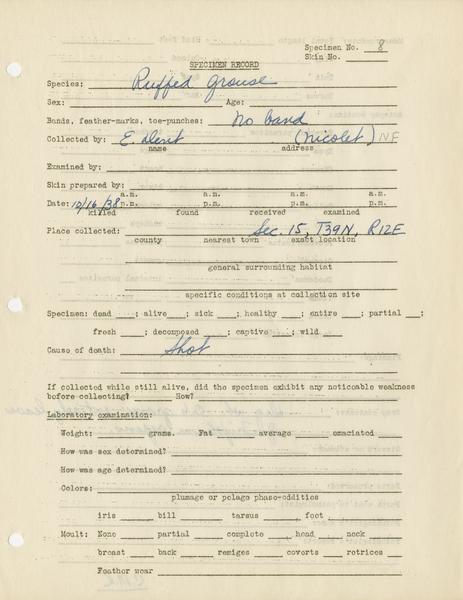 Specimen No. 8
Skin No.
SPECIMEN RECORD
Species: Ruffed grouse
Sex: Age:
Bands, feather-marks, toe-punches: No band
Collected by: E. (Nicolet) NF
name address
Examined by:
Skin prepared by:
a.m. a.m. a.m. a.m.
Date: 10/16/38 p.m. p.m. p.m. p.m.
killed found received examined
Place collected: Sec. 15, T39N, R12E
county nearest town exact location
general surrounding habitat
specific conditions at collection site
Specimen: dead ; alive ; sick ; healthy ; entire ; partial ;
fresh ; decomposed ; captive ; wild
Cause of death: Shot
If collected while still alive, did the specimen exhibit any noticeable weakness
before collecting? How?
Laboratory examination:
Weight: grams. Fat average emaciated
How was sex determined?
How was age determined?
Colors:
plumage or pelage phase-oddities
iris bill tarsus foot
Moult: None partial complete head neck
breast back remiges coverts retrices
Feather wear